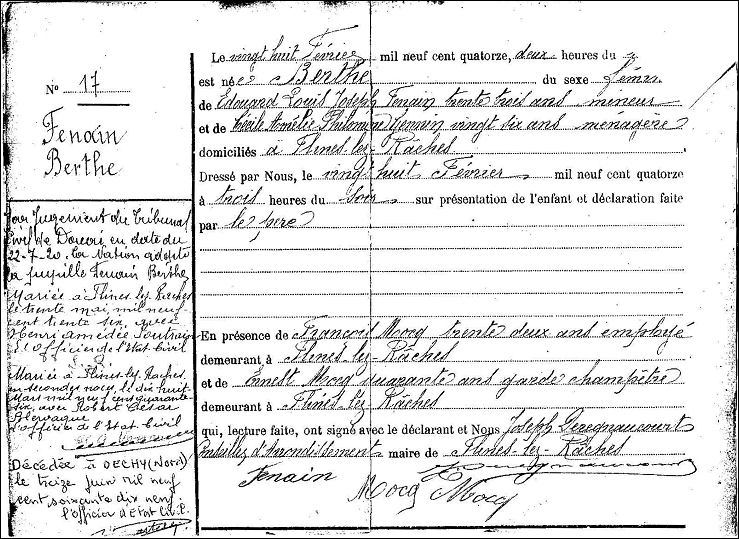 N° 17
Fenain
Berthe
Par Jugement du Tribunal
Civil de Douai en date du
22-7-20, la Nation adopte
la pupille Fenain Berthe
Mariée à Flines lez Raches
le trente mai mil neuf
cent trente six, avec
Henri Amédée
L'officier de l'Etat Civil
Mariée à Flines lez Raches
en secondes noces, le dix huit
Mars mil neuf cent quarante
six, avec Robert César
L'officier de l'Etat Civil
Décédée à DECHY (Nord)
le treize Juin mil neuf
cent soixante dix neuf
l'officier d'Etat Civil.
Le vingt huit Février mil neuf cent quatorze, deux heures du
est née Berthe du sexe fémn.
de Edouard Louis Joseph Fenain trente trois ans mineur
et de Cécile Amélie Philomène vingt six ans ménagère
domiciliés à Flines lez Râches
Dressé par Nous, le vingt huit Février mil neuf cent quatorze
à trois heures du soir sur présentation de l'enfant et déclaration faite
par le père
En présence de François Mocq trente deux ans employé
demeurant à Flines lez Râches
et de Ernest Mocq quarante ans garde champêtre
demeurant à Flines lez Râches
qui, lecture faite, ont signé avec le déclarant et Nous Joseph
Conseiller d'Arrondissement maire de Flines-lez-Râches
Fenain
Mocq Mocq